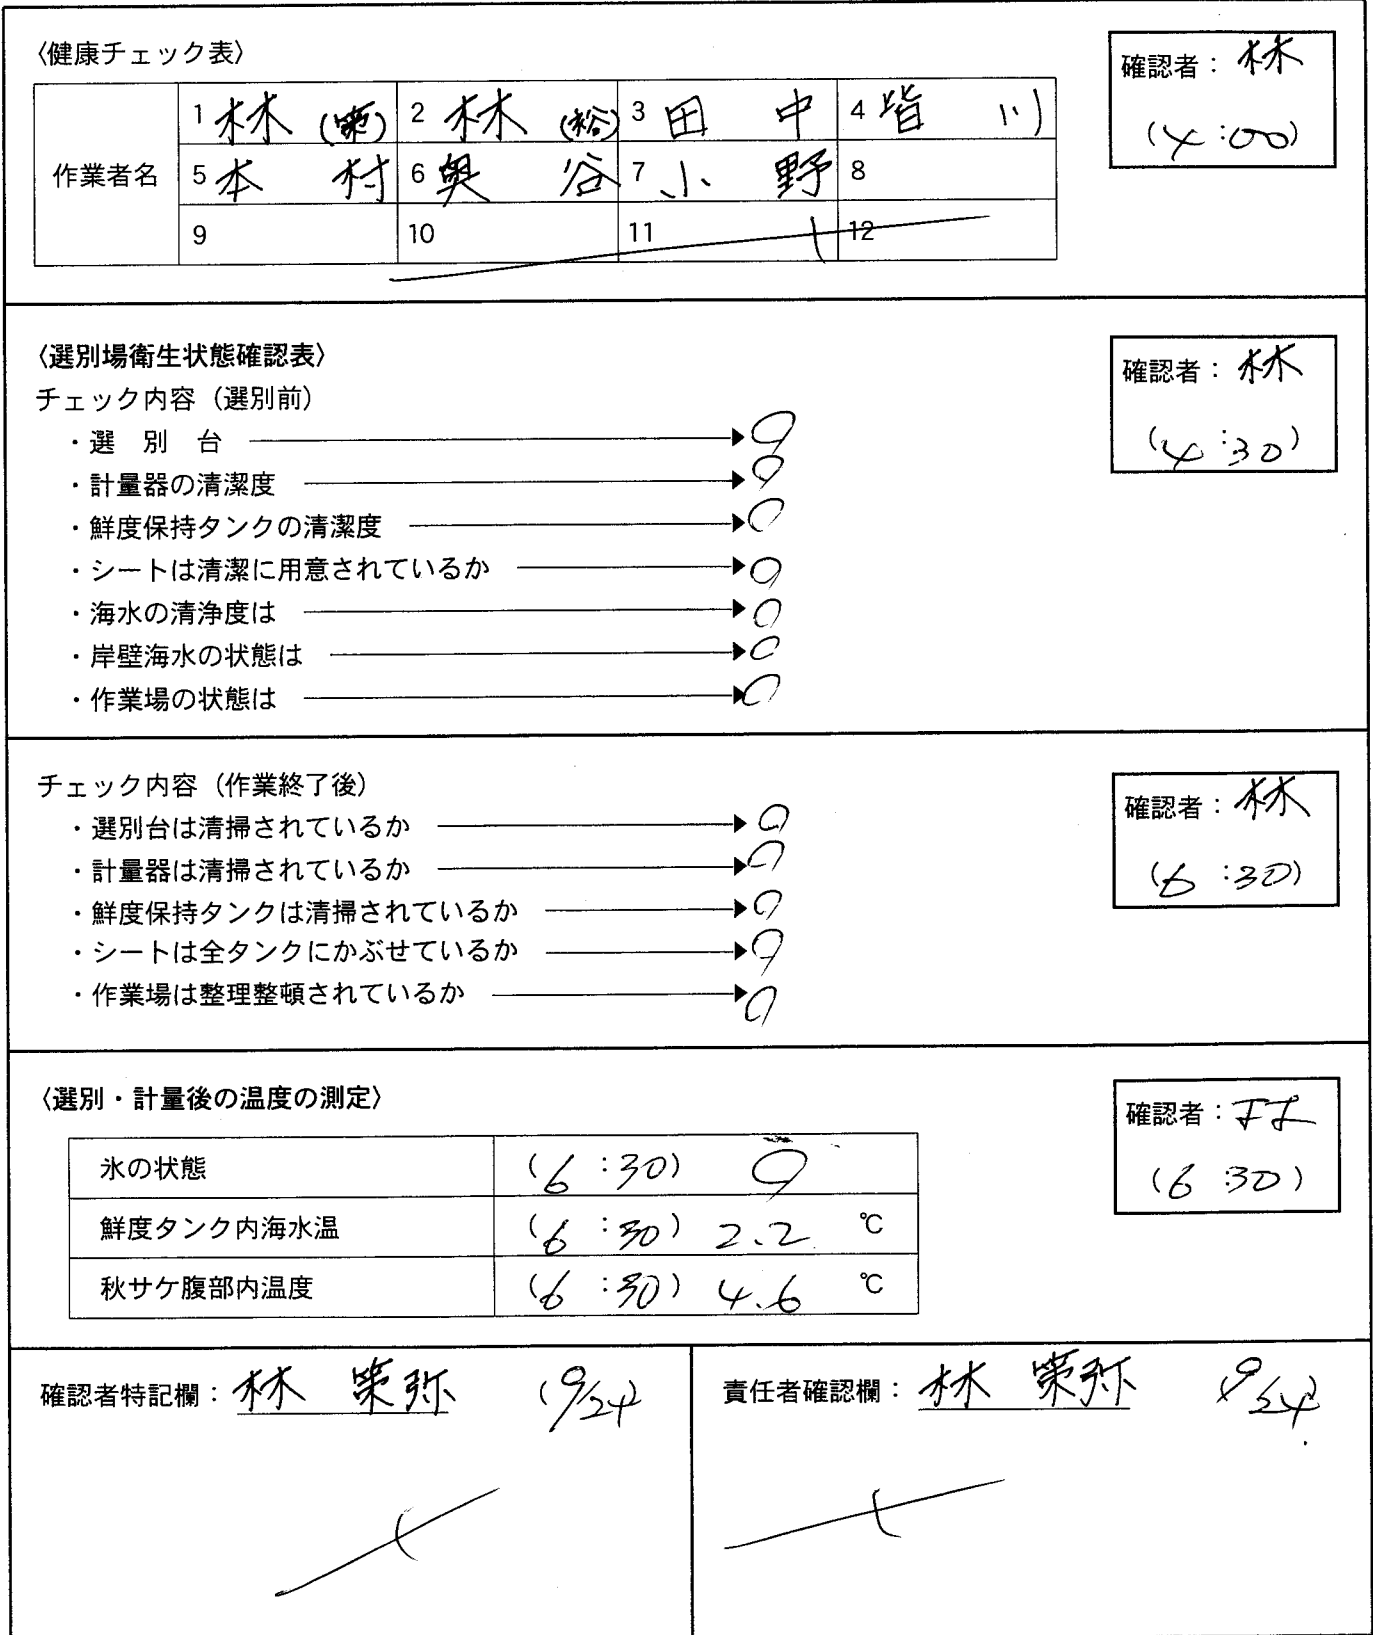 〈健康チェック表〉
確認者：林
(4:00)
作業者名
1 林 (策) 2 林 (裕) 3 田 中 4 皆 川
5 本 村 6 奥 谷 7 小 野 8
9 10 11 12
〈選別場衛生状態確認表〉
確認者：林
(4:30)
チェック内容（選別前）
・選 別 台 ○
・計量器の清潔度 ○
・鮮度保持タンクの清潔度 ○
・シートは清潔に用意されているか ○
・海水の清浄度は ○
・岸壁海水の状態は ○
・作業場の状態は ○
チェック内容（作業終了後）
確認者：林
(6:30)
・選別台は清掃されているか ○
・計量器は清掃されているか ○
・鮮度保持タンクは清掃されているか ○
・シートは全タンクにかぶせているか ○
・作業場は整理整頓されているか ○
〈選別・計量後の温度の測定〉
確認者：
(6:30)
氷の状態 (6:30) ○
鮮度タンク内海水温 (6:30) 2.2 ℃
秋サケ腹部内温度 (6:30) 4.6 ℃
確認者特記欄：林 策弥 (9/24)
責任者確認欄：林 策弥 9/24